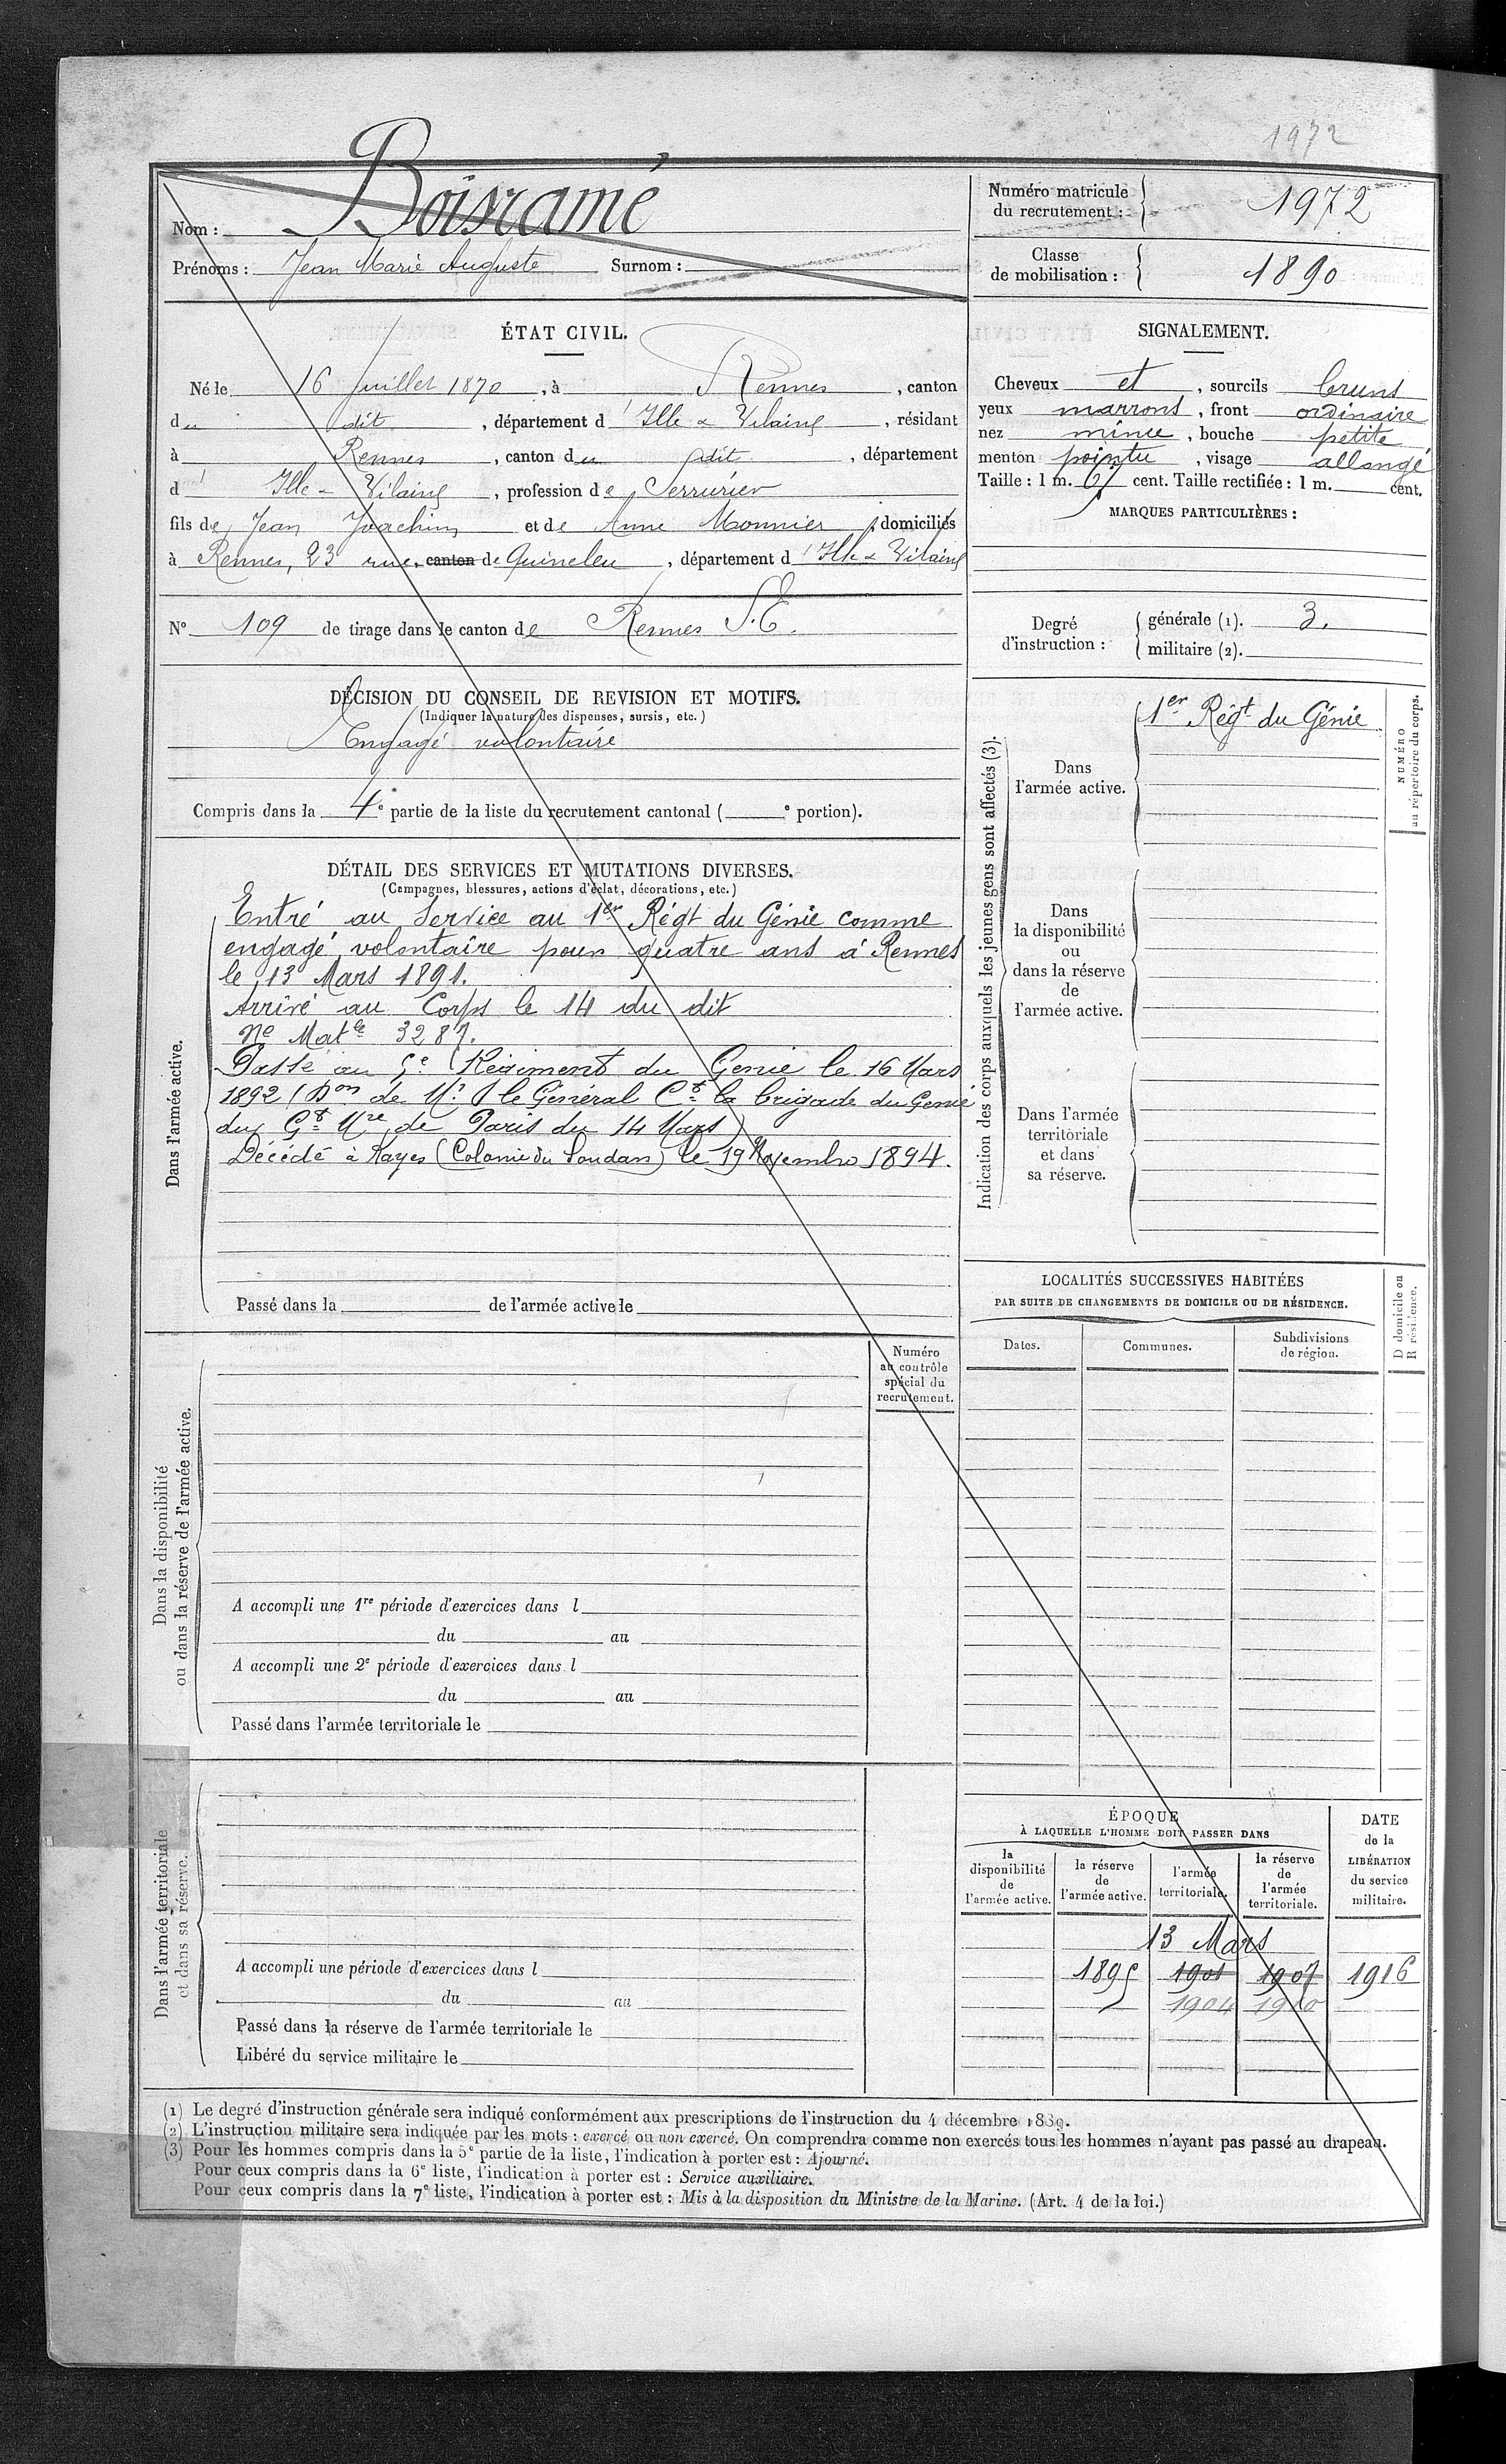 1972
Nom : Boisramé
Prénoms : Jean Marie Auguste Surnom :
Numéro matricule
du recrutement : 1972
Classe
de mobilisation : 1890
ÉTAT CIVIL.
Né le 16 juillet 1870, à Rennes, canton
du dit, département d'Ille & Vilaine, résidant
à Rennes, canton du dit, département
d'Ille-Vilaine, profession de Serrurier
fils de Jean Joachim et de Anne Monnier, domiciliés
à Rennes, 23 rue canton de Quineleu, département d'Ille & Vilaine
N° 109 de tirage dans le canton de Rennes S.E.
SIGNALEMENT.
Cheveux et, sourcils bruns
yeux marrons, front ordinaire
nez mince, bouche petite
menton pointu, visage allongé
Taille : 1 m. cent. Taille rectifiée : 1 m. cent.
MARQUES PARTICULIÈRES :
Degré
d'instruction :
générale (1). 3.
militaire (2).
DÉCISION DU CONSEIL DE REVISION ET MOTIFS.
(Indiquer la nature des dispenses, sursis, etc.)
Engagé volontaire
Compris dans la 4e partie de la liste du recrutement cantonal ( e portion).
DÉTAIL DES SERVICES ET MUTATIONS DIVERSES.
(Campagnes, blessures, actions d'éclat, décorations, etc.)
Dans l'armée active.
Entré au Service au 1er Régt du Génie comme
engagé volontaire pour quatre ans à Rennes
le 13 Mars 1891.
Arrivé au Corps le 14 du dit
No Matle 3287.
Passé au 5e Régiment du Génie le 16 Mars
1892 (Don de Mr le Général Ct la brigade du Génie
du Gt Mre de Paris du 14 Mars)
Décédé à Kayes (Colonie du Soudan) le 19 Novembre 1894.
Passé dans la de l'armée active le
Indication des corps auxquels les jeunes gens sont affectés (3).
Dans
l'armée active.
1er Régt du Génie
NUMÉRO
au répertoire du corps.
Dans
la disponibilité
ou
dans la réserve
de
l'armée active.
Dans l'armée
territoriale
et dans
sa réserve.
LOCALITÉS SUCCESSIVES HABITÉES
PAR SUITE DE CHANGEMENTS DE DOMICILE OU DE RÉSIDENCE.
Dates.
Communes.
Subdivisions
de région.
D domicile ou
R résidence.
Dans la disponibilité
ou dans la réserve de l'armée active.
Numéro
au contrôle
spécial du
recrutement.
A accompli une 1re période d'exercices dans l
du au
A accompli une 2e période d'exercices dans l
du au
Passé dans l'armée territoriale le
Dans l'armée territoriale
et dans sa réserve.
A accompli une période d'exercices dans l
du au
Passé dans la réserve de l'armée territoriale le
Libéré du service militaire le
ÉPOQUE
À LAQUELLE L'HOMME DOIT PASSER DANS
la
disponibilité
de
l'armée active.
la réserve
de
l'armée active.
l'armée
territoriale.
la réserve
de
l'armée
territoriale.
DATE
de la
LIBÉRATION
du service
militaire.
13 Mars
1895 1901 1907 1916
1904 1910
(1) Le degré d'instruction générale sera indiqué conformément aux prescriptions de l'instruction du 4 décembre 1889.
(2) L'instruction militaire sera indiquée par les mots : exercé ou non exercé. On comprendra comme non exercés tous les hommes n'ayant pas passé au drapeau.
(3) Pour les hommes compris dans la 5e partie de la liste, l'indication à porter est : Ajourné.
Pour ceux compris dans la 6e liste, l'indication à porter est : Service auxiliaire.
Pour ceux compris dans la 7e liste, l'indication à porter est : Mis à la disposition du Ministre de la Marine. (Art. 4 de la loi.)